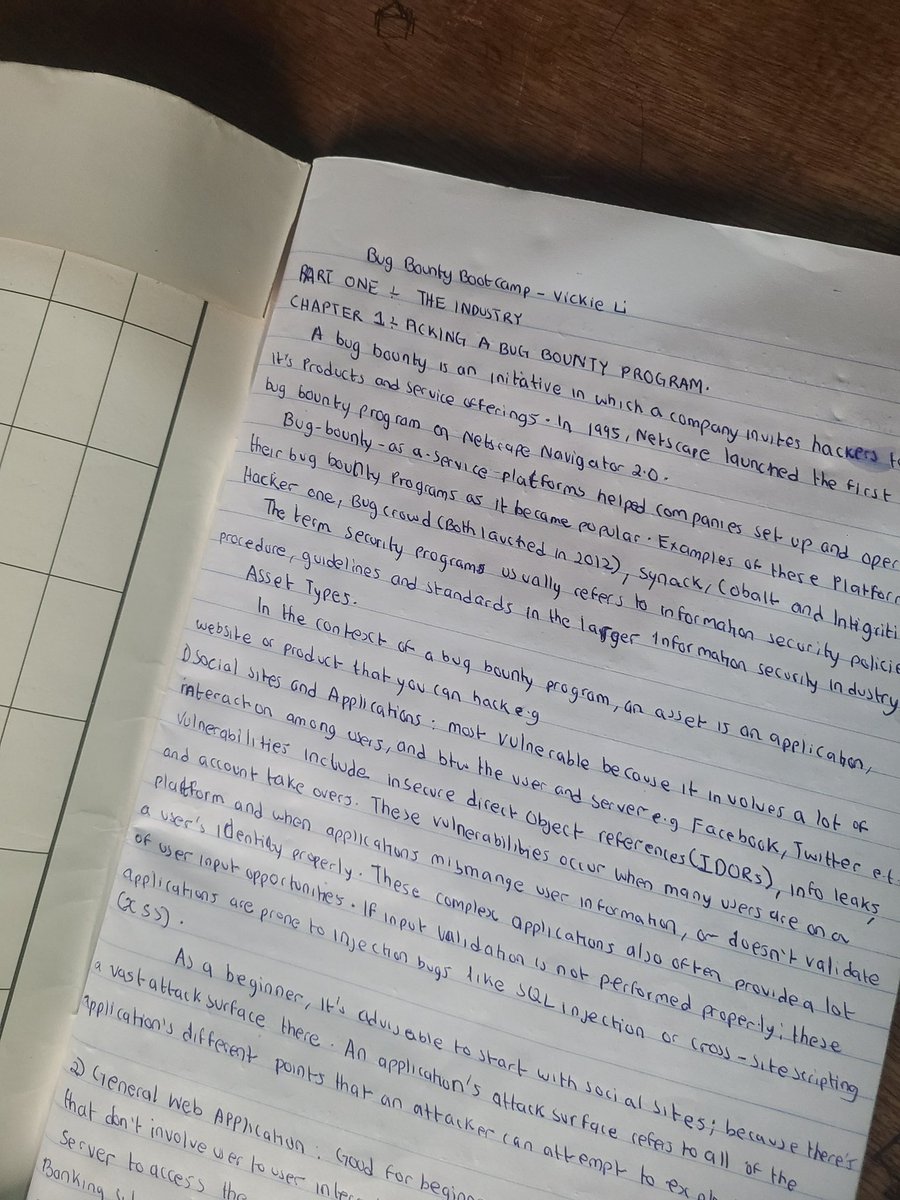 Bug Bounty BootCamp - Vickie Li
PART ONE : THE INDUSTRY
CHAPTER 1 : PICKING A BUG BOUNTY PROGRAM.
A bug bounty is an initiative in which a company invites hackers
it's Products and Service offerings. In 1995, Netscape launched the first
bug bounty program on Netscape Navigator 2.0.
Bug-bounty-as a-service-platforms helped companies set up and
their bug bounty Programs as it became popular. Examples of these
Hacker one, Bug crowd (Both lauched in 2012), Synack, Cobalt and Intigriti
The term security programs usually refers to information security
procedure, guidelines and standards in the larger Information security industry
Asset Types.
In the context of a bug bounty program, an asset is an application,
website or product that you can hack e.g
1) Social sites and Applications: most vulnerable because it involves a lot of
interaction among users, and btw the user and server e.g Facebook, Twitter
Vulnerabilities include insecure direct Object references (IDORs), info leaks,
and account take overs. These vulnerabilities occur when many users are on a
platform and when applications mismange user information, or doesn't validate
a user's identity properly. These complex applications also often provide a lot
of user input opportunities. If input validation is not performed properly; these
applications are prone to injection bugs like SQL injection or cross-site scripting
(XSS).
As a beginner, it's adviseable to start with social sites; because there's
a vast attack surface there. An application's attack surface refers to all of the
application's different points that an attacker can attempt to
2) General Web Application: Good for
that don't involve user to user
Server to access the
Banking